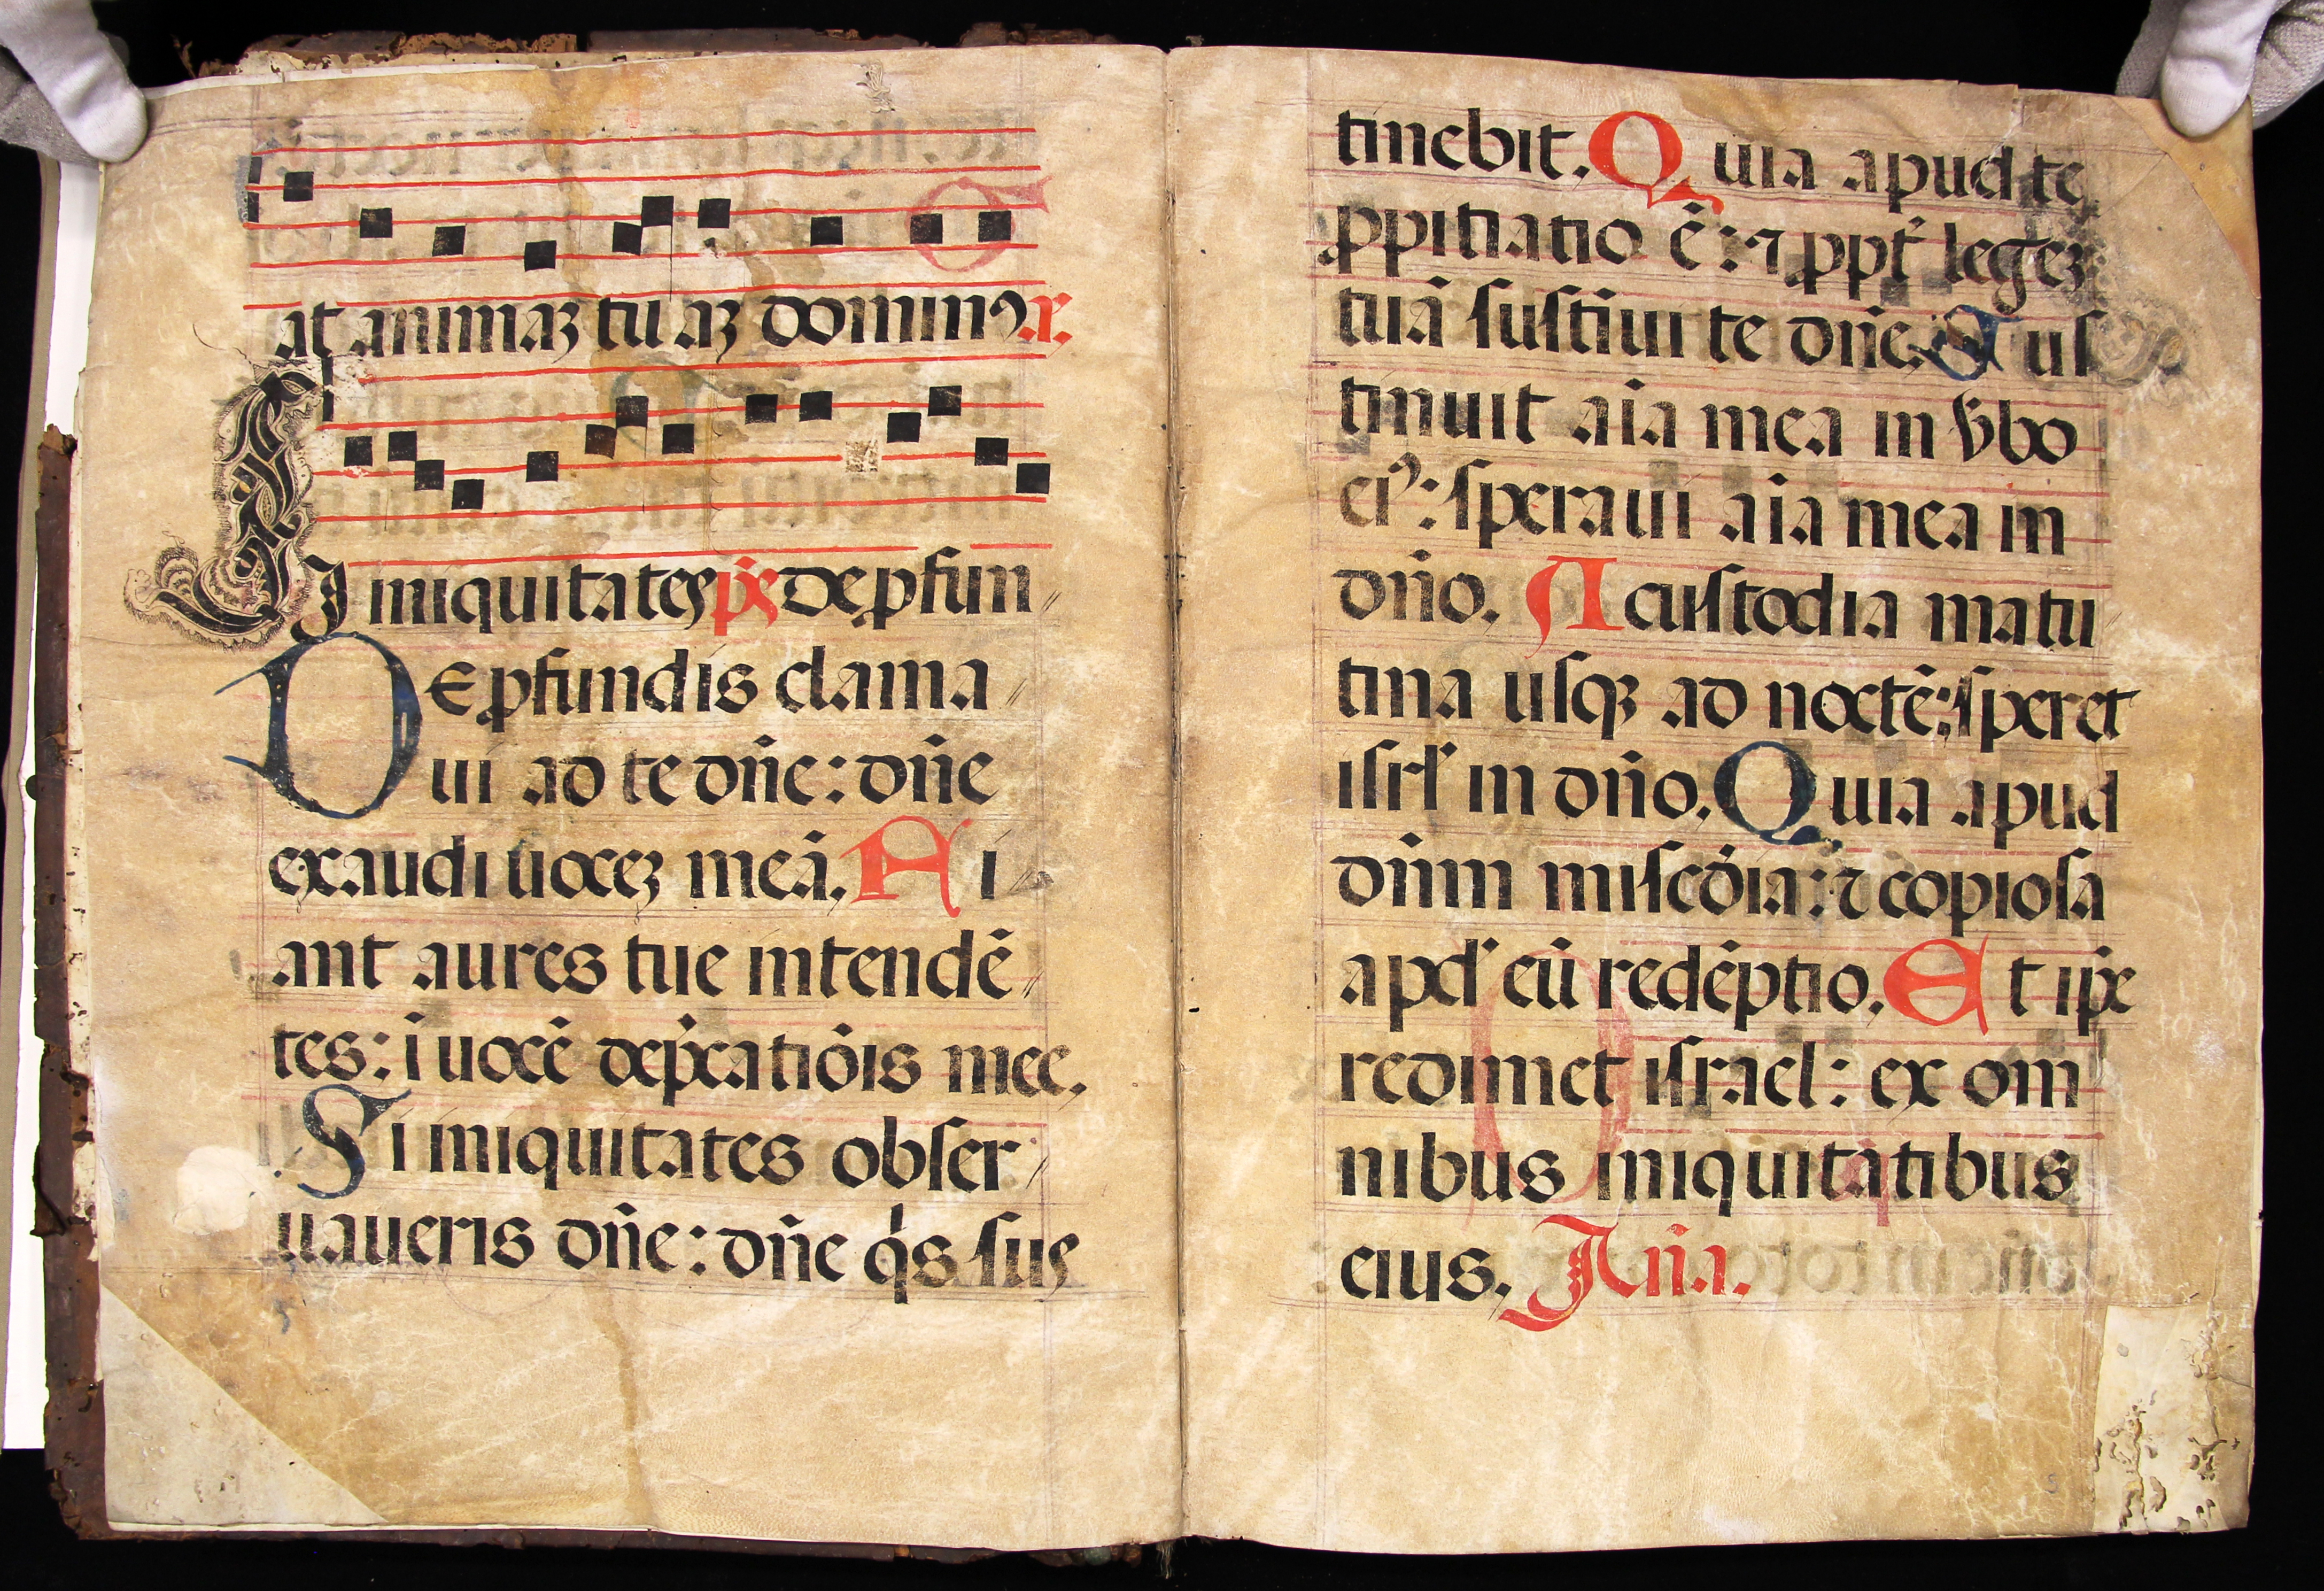 at animaꝫ tu aꝫ dominꝰ a.
Si iniquitates ps̄ de ꝓfun
De ꝓfundis clama
ui ad te dn̄e: dn̄e
exaudi uoceꝫ meā. Fi
ant aures tue intendē
tes: ī uocē dep̄catiōis mee.
Si iniquitates obser
uaueris dn̄e: dn̄e q̇s sus
tinebit. Quia apud te
ꝓpitiatio ē: ⁊ ꝓpt̄ legeꝫ
tuā sustīui te dn̄e. Sus
tinuit aīa mea in v̄bo
eiꝰ: sperauit aīa mea in
dn̄o. A custodia matu
tina usqꝫ ad noctē: speret
isrl̄ in dn̄o. Quia apud
dn̄m miscōia: ⁊ copiosa
apd̓ eū redēptio. Et ip̄e
redimet israel: ex om
nibus iniquitatibus
eius. An̄a.